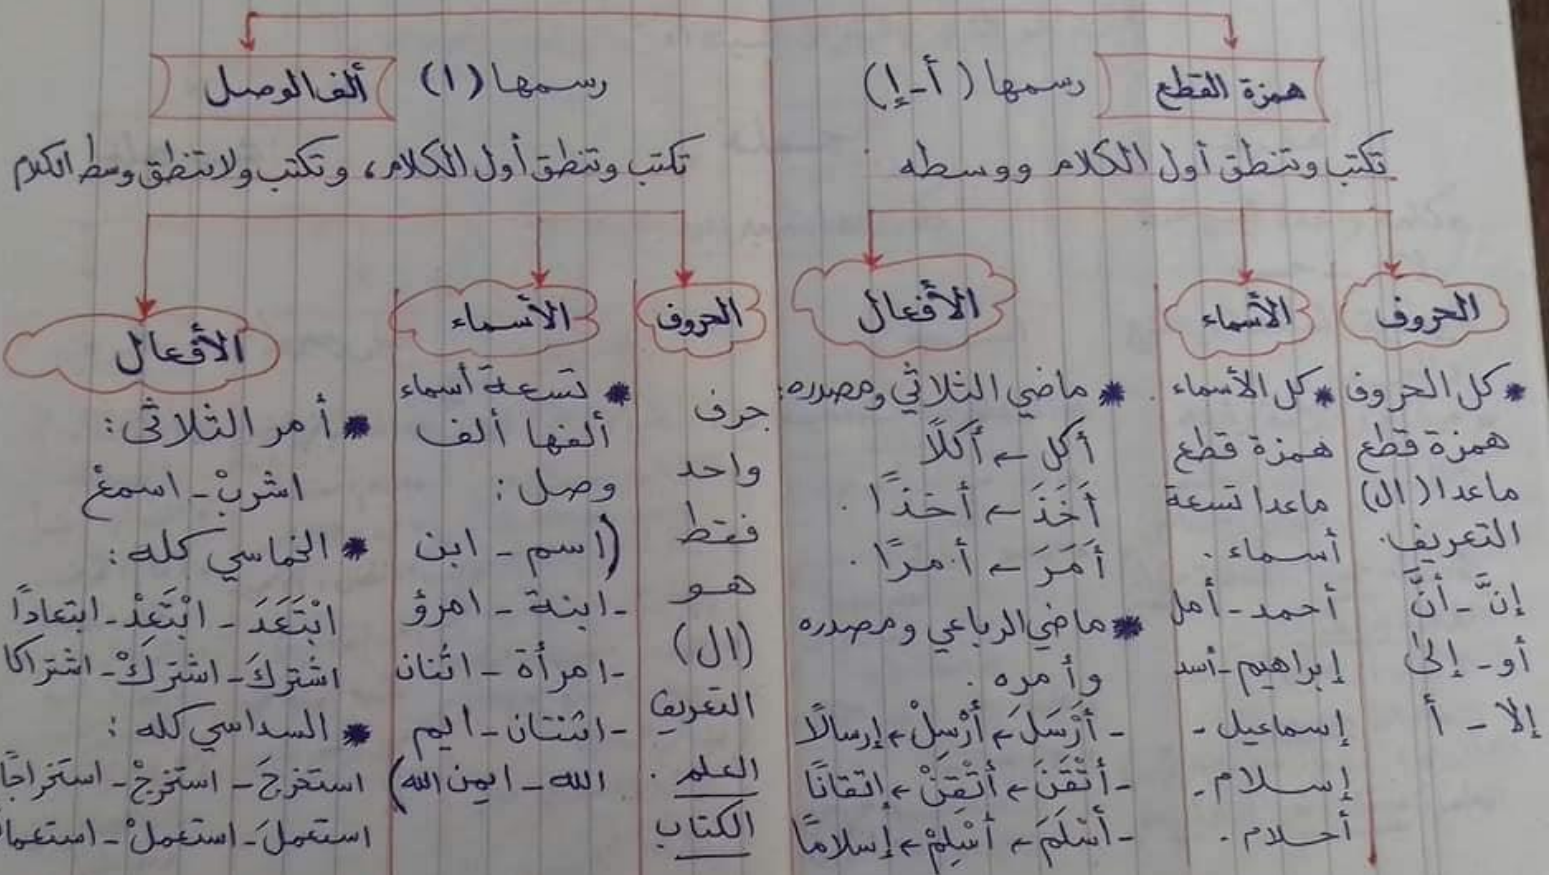 همزة القطع رسمها (أ-إ)
تكتب وتنطق أول الكلام ووسطه
الحروف
* كل الحروف
همزة قطع
ماعدا (ال)
التعريف.
إنَّ - أنَّ
أو - إلى
إلا - أ
الأسماء
* كل الأسماء
همزة قطع
ماعدا تسعة
أسماء.
أحمد - أمل
إبراهيم - أسد
إسماعيل -
إسلام -
أحلام -
الأفعال
* ماضي الثلاثي ومصدره:
أكل ← أكلًا
أَخَذَ ← أخذًا.
أَمَرَ ← أمرًا.
* ماضي الرباعي ومصدره
وأمره.
- أَرْسَلَ ← أَرْسِلْ ← إرسالًا
- أَتْقَنَ ← أَتْقِنْ ← إتقانًا
- أَسْلَمَ ← أَسْلِمْ ← إسلامًا
ألف الوصل رسمها (ا)
تكتب وتنطق أول الكلام، وتكتب ولا تنطق وسط الكلام
الحروف
حرف
واحد
فقط
هو
(ال)
التعريف
العلم.
الكتاب
الأسماء
* تسعة أسماء
ألفها ألف
وصل:
(اسم - ابن
- ابنة - امرؤ
- امرأة - اثنان
- اثنتان - ايم
الله - ايمن الله)
الأفعال
* أمر الثلاثى:
اشربْ - اسمعْ
* الخماسي كله:
ابْتَعَدَ - ابْتَعِدْ - ابتعادًا
اشْتركَ - اشتركْ - اشتراكا
* السداسي كله:
استخرجَ - استخرجْ - استخراجًا
استعملَ - استعملْ - استعما